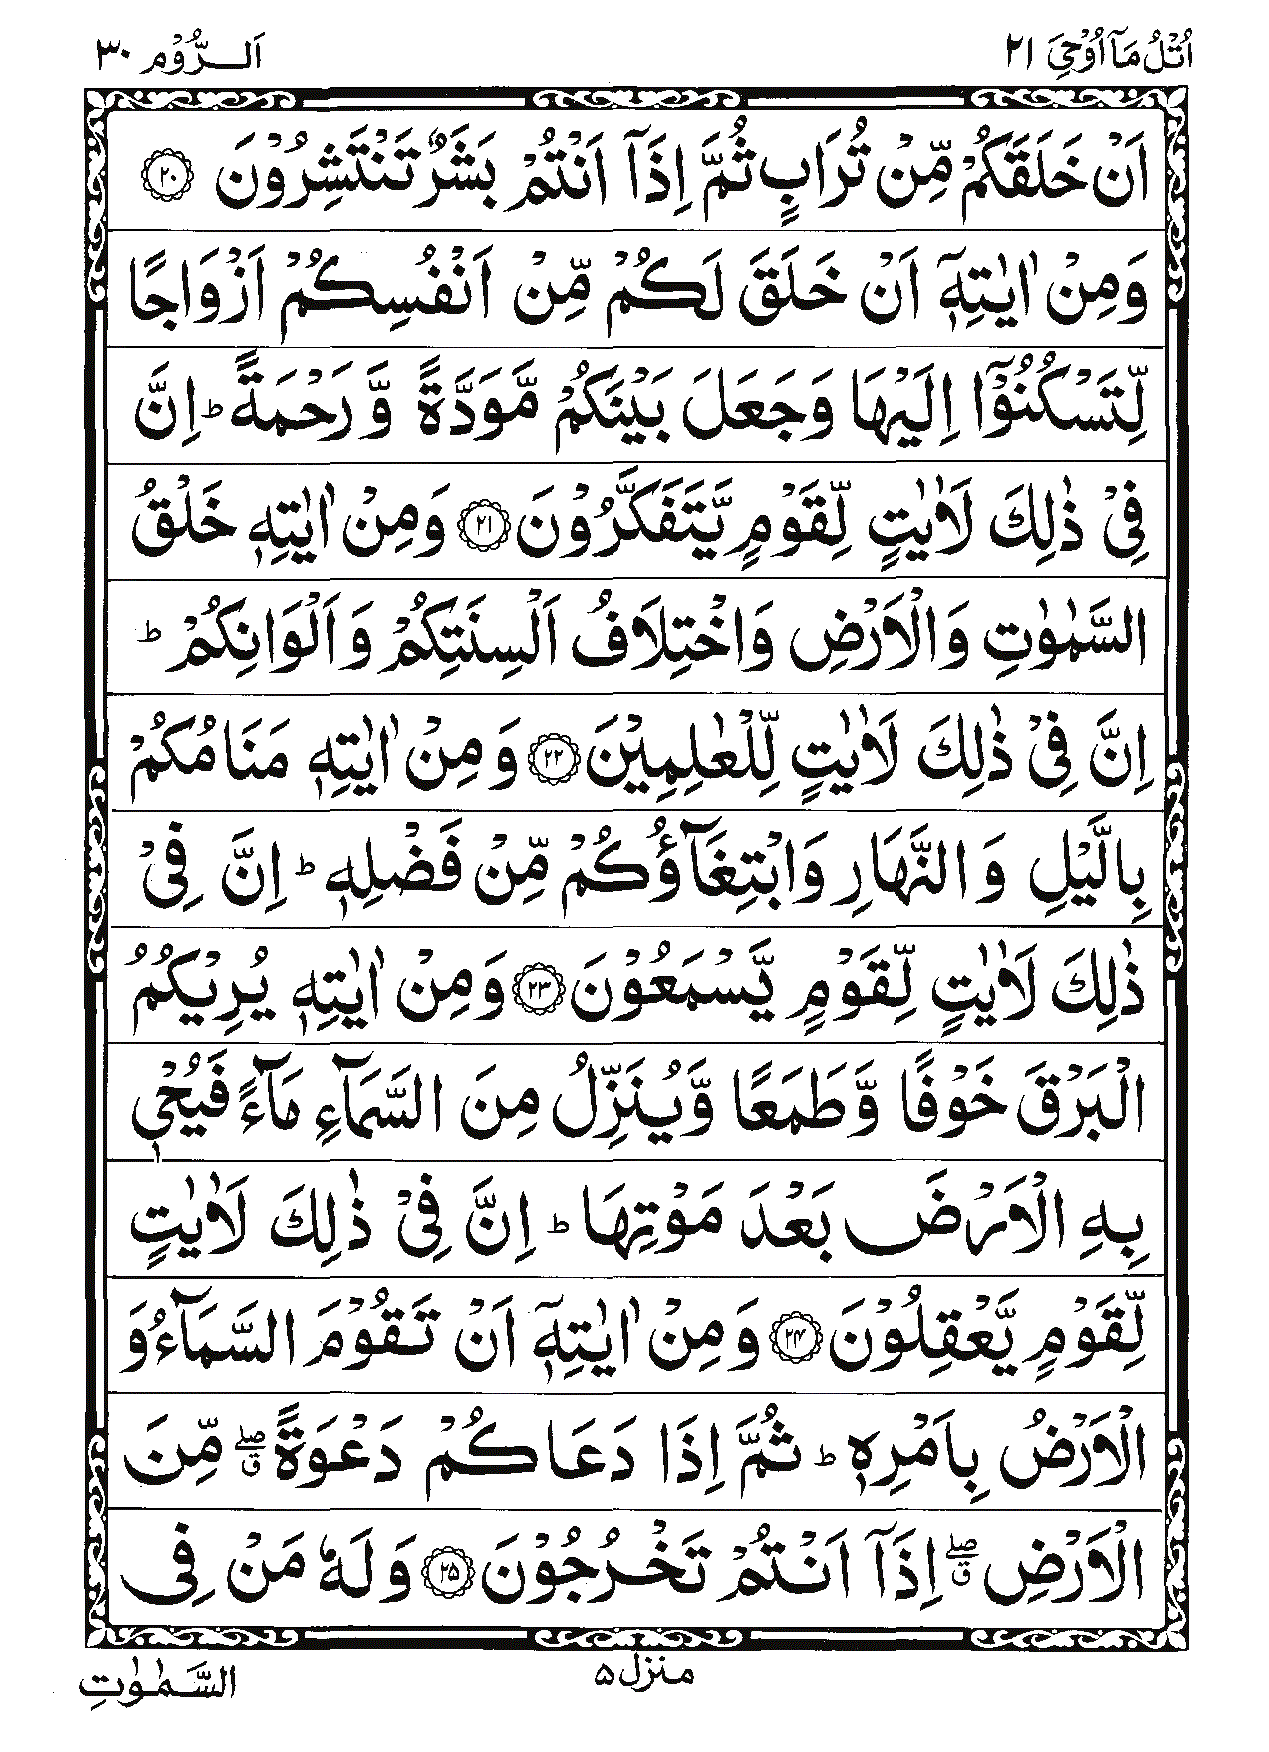 اُتْلُ مَاۤ اُوْحِیَ ۲۱
اَلـرُّوْم ۳۰
اَنْ خَلَقَكُمْ مِّنْ تُرَابٍ ثُمَّ اِذَاۤ اَنْتُمْ بَشَرٌ تَنْتَشِرُوْنَ ۝۲۰
وَمِنْ اٰیٰتِهٖۤ اَنْ خَلَقَ لَكُمْ مِّنْ اَنْفُسِكُمْ اَزْوَاجًا
لِّتَسْكُنُوْۤا اِلَیْهَا وَجَعَلَ بَیْنَكُمْ مَّوَدَّةً وَّ رَحْمَةً ؕ اِنَّ
فِیْ ذٰلِكَ لَاٰیٰتٍ لِّقَوْمٍ یَّتَفَكَّرُوْنَ ۝۲۱ وَمِنْ اٰیٰتِهٖ خَلْقُ
السَّمٰوٰتِ وَالْاَرْضِ وَاخْتِلَافُ اَلْسِنَتِكُمْ وَاَلْوَانِكُمْ ؕ
اِنَّ فِیْ ذٰلِكَ لَاٰیٰتٍ لِّلْعٰلِمِیْنَ ۝۲۲ وَمِنْ اٰیٰتِهٖ مَنَامُكُمْ
بِالَّیْلِ وَ النَّهَارِ وَابْتِغَآؤُكُمْ مِّنْ فَضْلِهٖ ؕ اِنَّ فِیْ
ذٰلِكَ لَاٰیٰتٍ لِّقَوْمٍ یَّسْمَعُوْنَ ۝۲۳ وَمِنْ اٰیٰتِهٖ یُرِیْكُمُ
الْبَرْقَ خَوْفًا وَّطَمَعًا وَّیُنَزِّلُ مِنَ السَّمَآءِ مَآءً فَیُحْیٖ
بِهِ الْاَرْضَ بَعْدَ مَوْتِهَا ؕ اِنَّ فِیْ ذٰلِكَ لَاٰیٰتٍ
لِّقَوْمٍ یَّعْقِلُوْنَ ۝۲۴ وَمِنْ اٰیٰتِهٖۤ اَنْ تَقُوْمَ السَّمَآءُ وَ
الْاَرْضُ بِاَمْرِهٖ ؕ ثُمَّ اِذَا دَعَاكُمْ دَعْوَةً ۖۗ مِّنَ
الْاَرْضِ ۖۗ اِذَاۤ اَنْتُمْ تَخْرُجُوْنَ ۝۲۵ وَلَهٗ مَنْ فِی
منزل ۵
السَّمٰوٰتِ